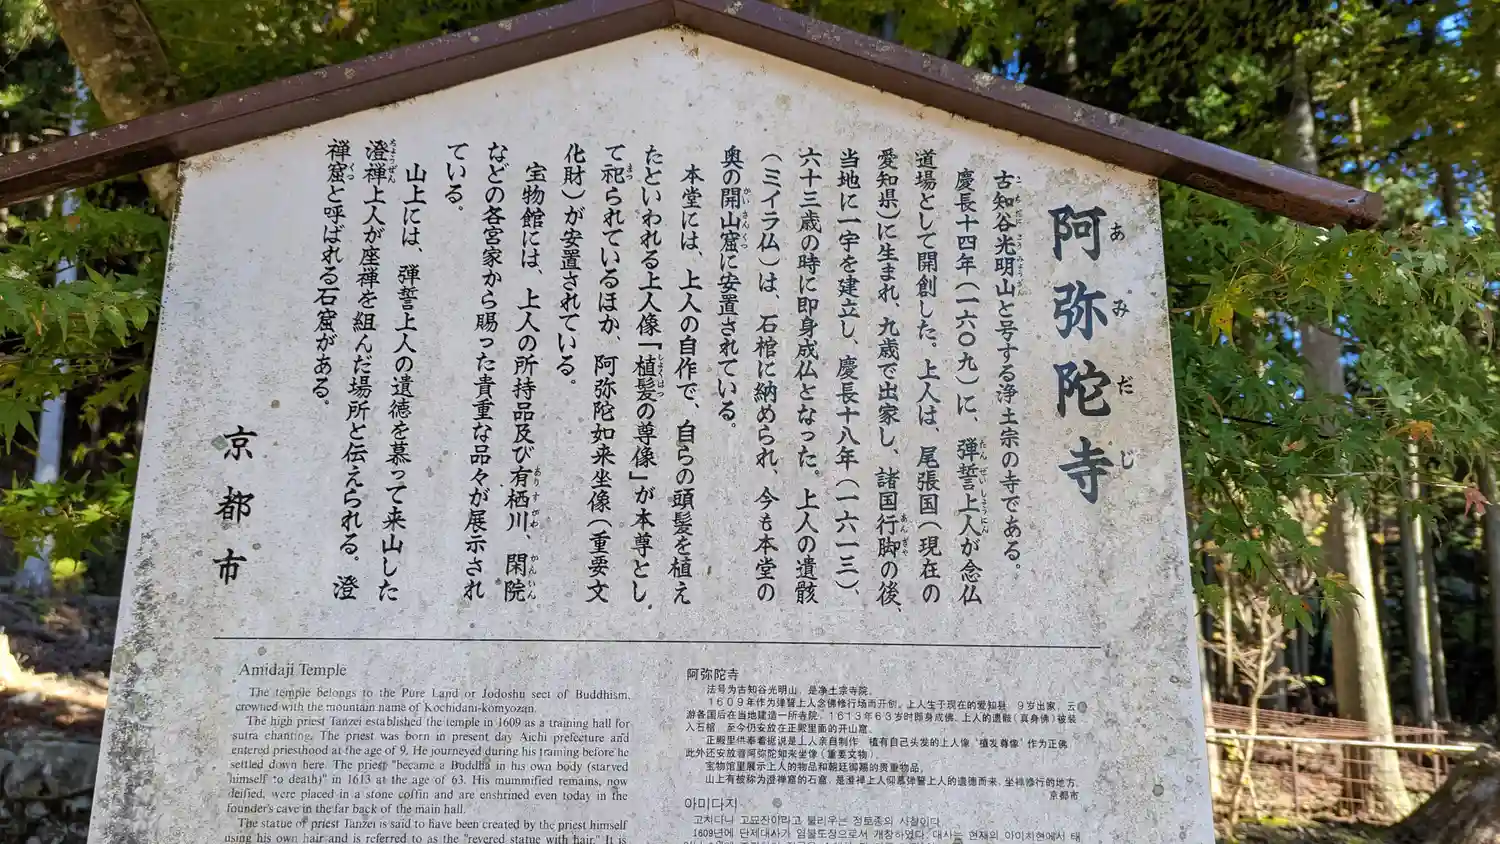 阿弥陀寺
古知谷光明山と号する浄土宗の寺である。
慶長十四年（一六〇九）に、弾誓上人が念仏
道場として開創した。上人は、尾張国（現在の
愛知県）に生まれ、九歳で出家し、諸国行脚の後、
当地に一宇を建立し、慶長十八年（一六一三）、
六十三歳の時に即身成仏となった。上人の遺骸
（ミイラ仏）は、石棺に納められ、今も本堂の
奥の開山窟に安置されている。
本堂には、上人の自作で、自らの頭髪を植え
たといわれる上人像「植髪の尊像」が本尊とし
て祀られているほか、阿弥陀如来坐像（重要文
化財）が安置されている。
宝物館には、上人の所持品及び有栖川、閑院
などの各宮家から賜った貴重な品々が展示され
ている。
山上には、弾誓上人の遺徳を慕って来山した
澄禅上人が座禅を組んだ場所と伝えられる。澄
禅窟と呼ばれる石窟がある。
京都市
Amidaji Temple
The temple belongs to the Pure Land or Jodoshu sect of Buddhism,
crowned with the mountain name of Kochidani-komyozan.
The high priest Tanzei established the temple in 1609 as a training hall for
sutra chanting. The priest was born in present day Aichi prefecture and
entered priesthood at the age of 9. He journeyed during his training before he
settled down here. The priest "became a Buddha in his own body (starved
himself to death)" in 1613 at the age of 63. His mummified remains, now
deified, were placed in a stone coffin and are enshrined even today in the
founder's cave in the far back of the main hall.
The statue of priest Tanzei is said to have been created by the priest himself
using his own hair and is referred to as the "revered statue with hair." It is
阿弥陀寺
法号为古知谷光明山，是净土宗寺院。
1609年作为弹誓上人念佛修行场而开创。上人生于现在的爱知县，9岁出家，云
游各国后在当地建造一所寺院，1613年63岁时即身成佛。上人的遗骸（真身佛）被装
入石棺，至今仍安放在正殿里面的开山窟。
正殿里供奉着据说是上人亲自制作，植有自己头发的上人像"植发尊像"作为正佛
此外还安放着阿弥陀如来坐像（重要文物）
宝物馆里展示上人的物品和朝廷御赐的贵重物品。
山上有被称为澄禅窟的石窟，是澄禅上人仰慕弹誓上人的遗德而来，坐禅修行的地方。
京都市
아미다지
고치다니 고묘잔이라고 불리우는 정토종의 사찰이다.
1609년에 단제대사가 염불도장으로서 개창하였다. 대사는 현재의 아이치현에서 태